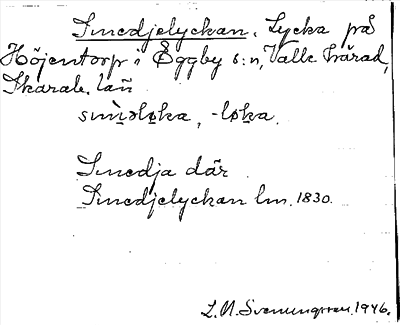 Smedjelyckan. Lycka på
Höjentorp i Eggby s:n, Valle härad,
Skarab. län
smìəløka, -løka.
Smedja där
Smedjelyckan lm. 1830.
L. N. Svenungsson. 1946.